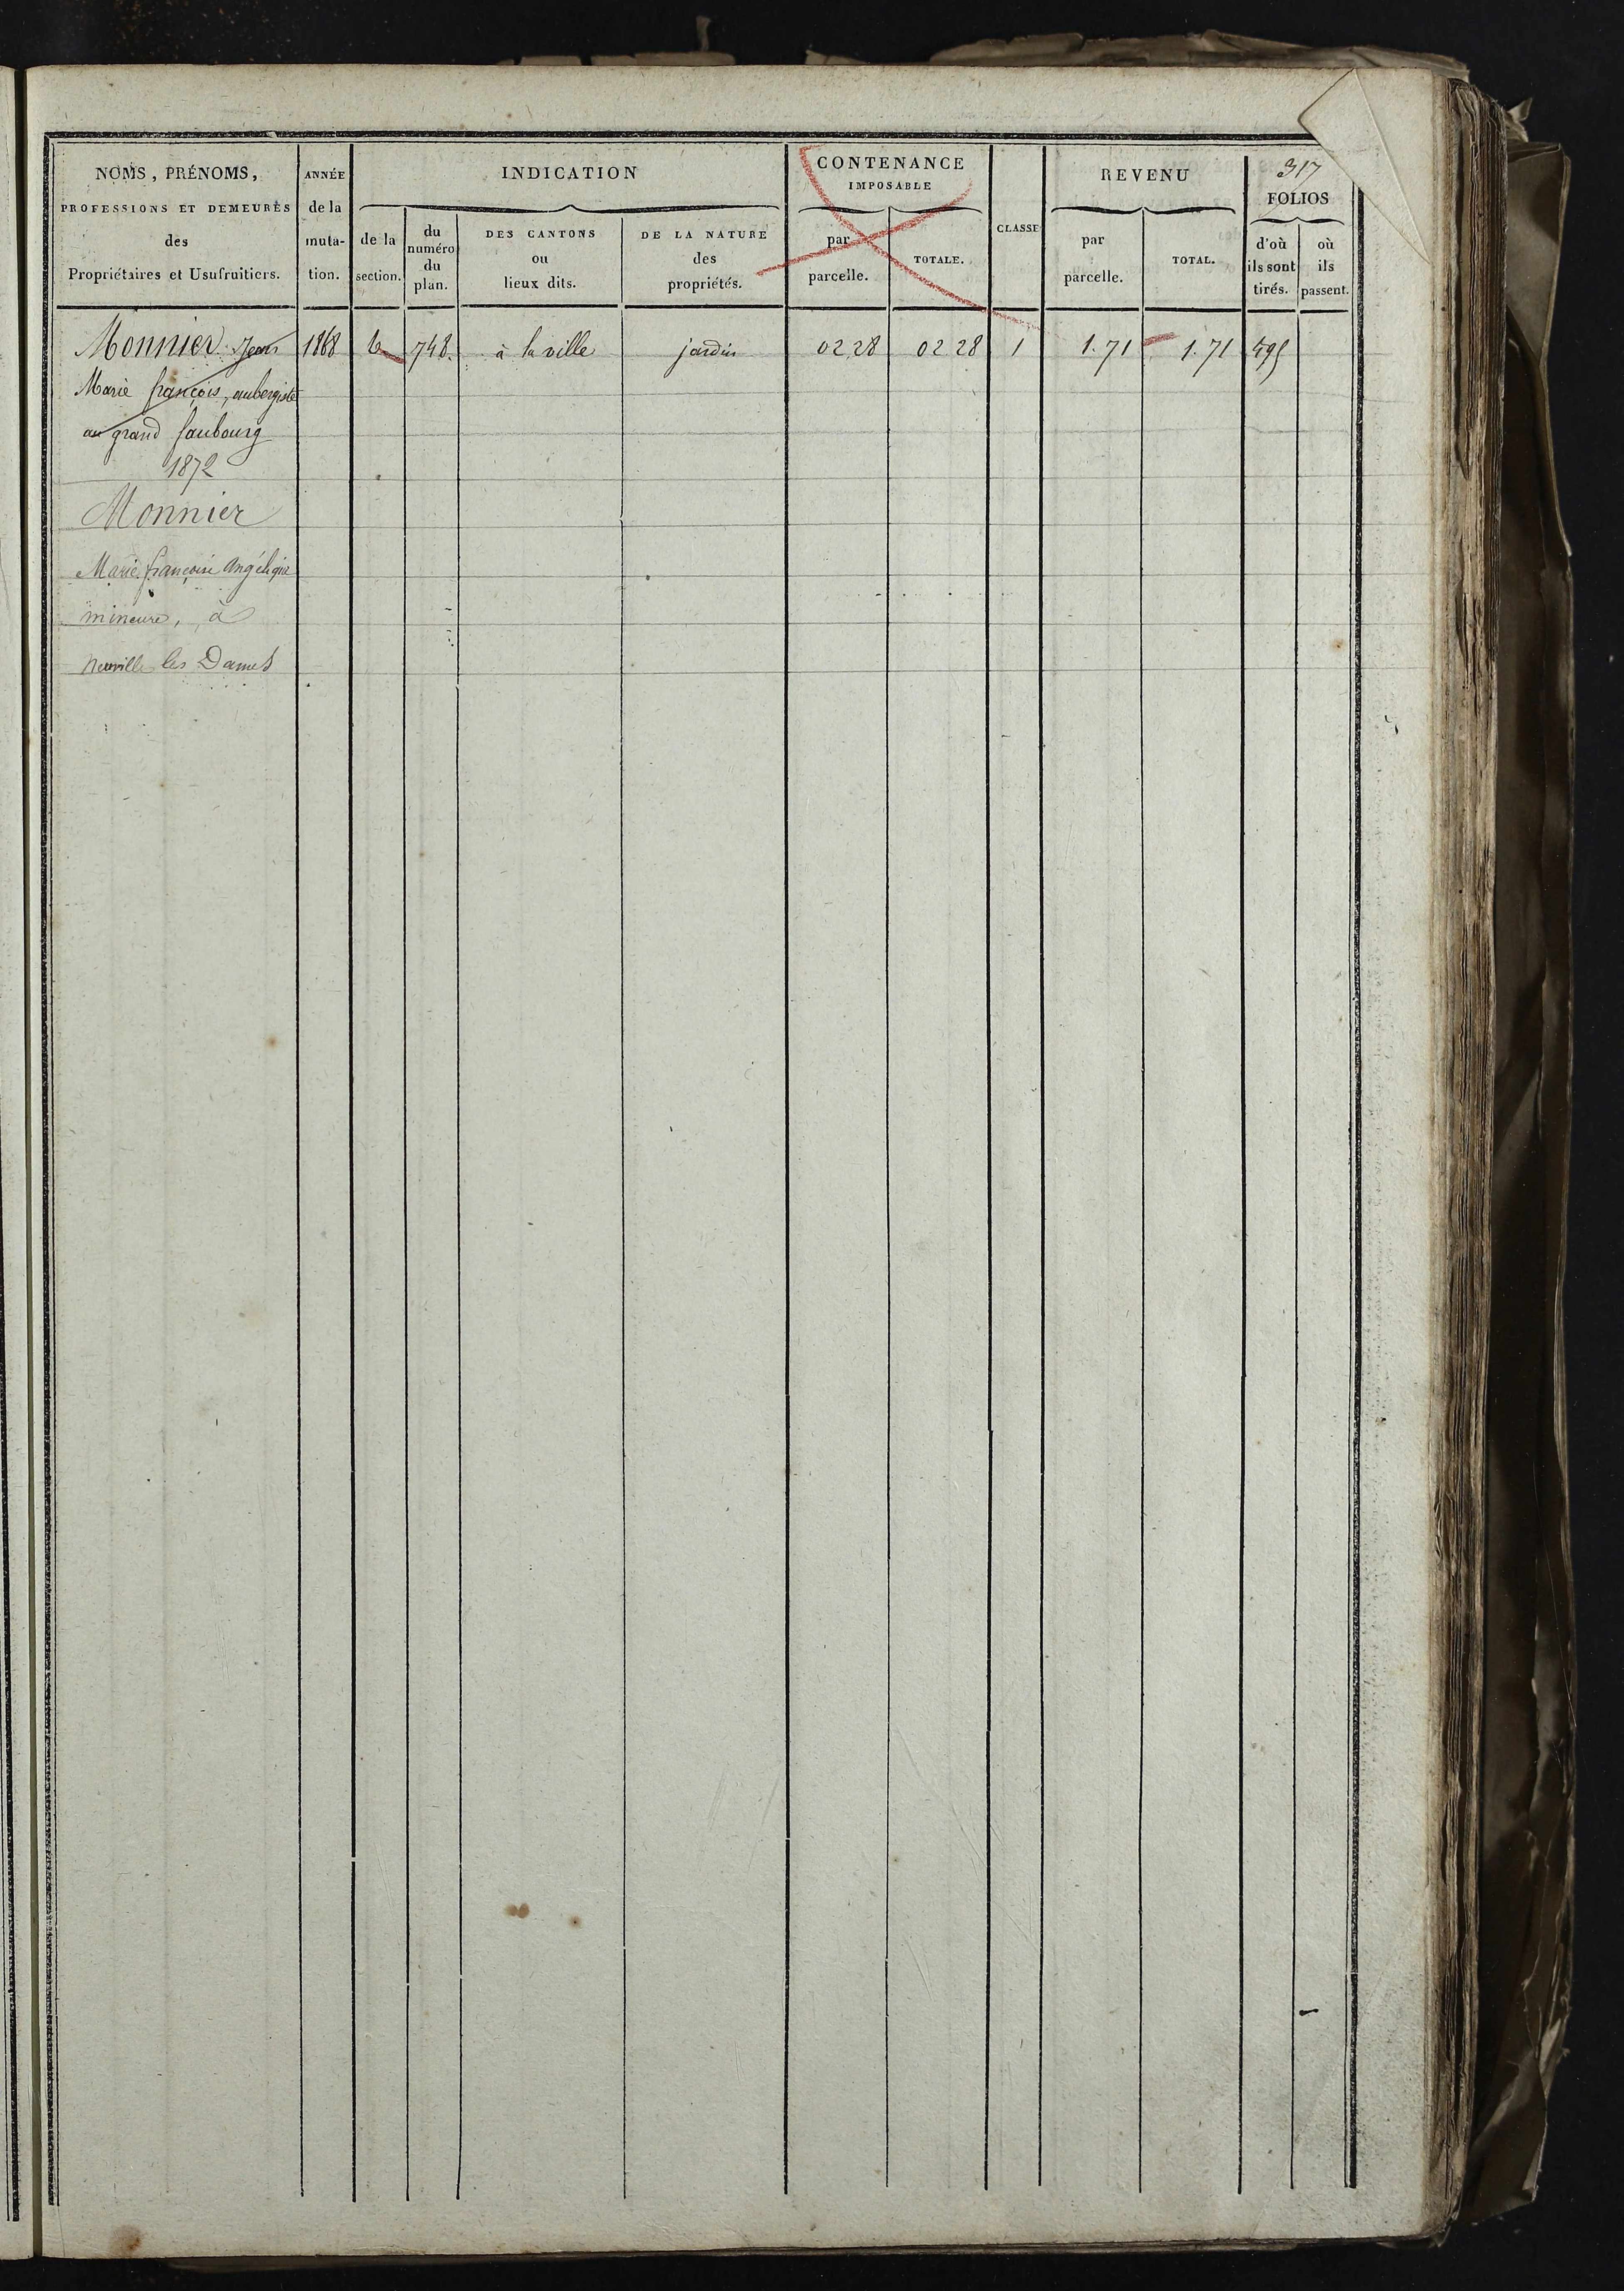 317
NOMS, PRÉNOMS,
PROFESSIONS ET DEMEURES
des
Propriétaires et Usufruitiers.
ANNÉE
de la
muta-
tion.
INDICATION
de la
section.
du
numéro
du
plan.
DES CANTONS
ou
lieux dits.
DE LA NATURE
des
propriétés.
CONTENANCE
IMPOSABLE
par
parcelle.
TOTALE.
CLASSE
REVENU
par
parcelle.
TOTAL.
FOLIOS
d'où
ils sont
tirés.
où
ils
passent.
Monnier Jean 1868 748. à la ville jardin 02 28 02 28 1 1.71 1.71
Marie françois, aubergiste
au grand faubourg
1872
Monnier
Marie françoise Angélique
mineure, à
Neuville les Dames